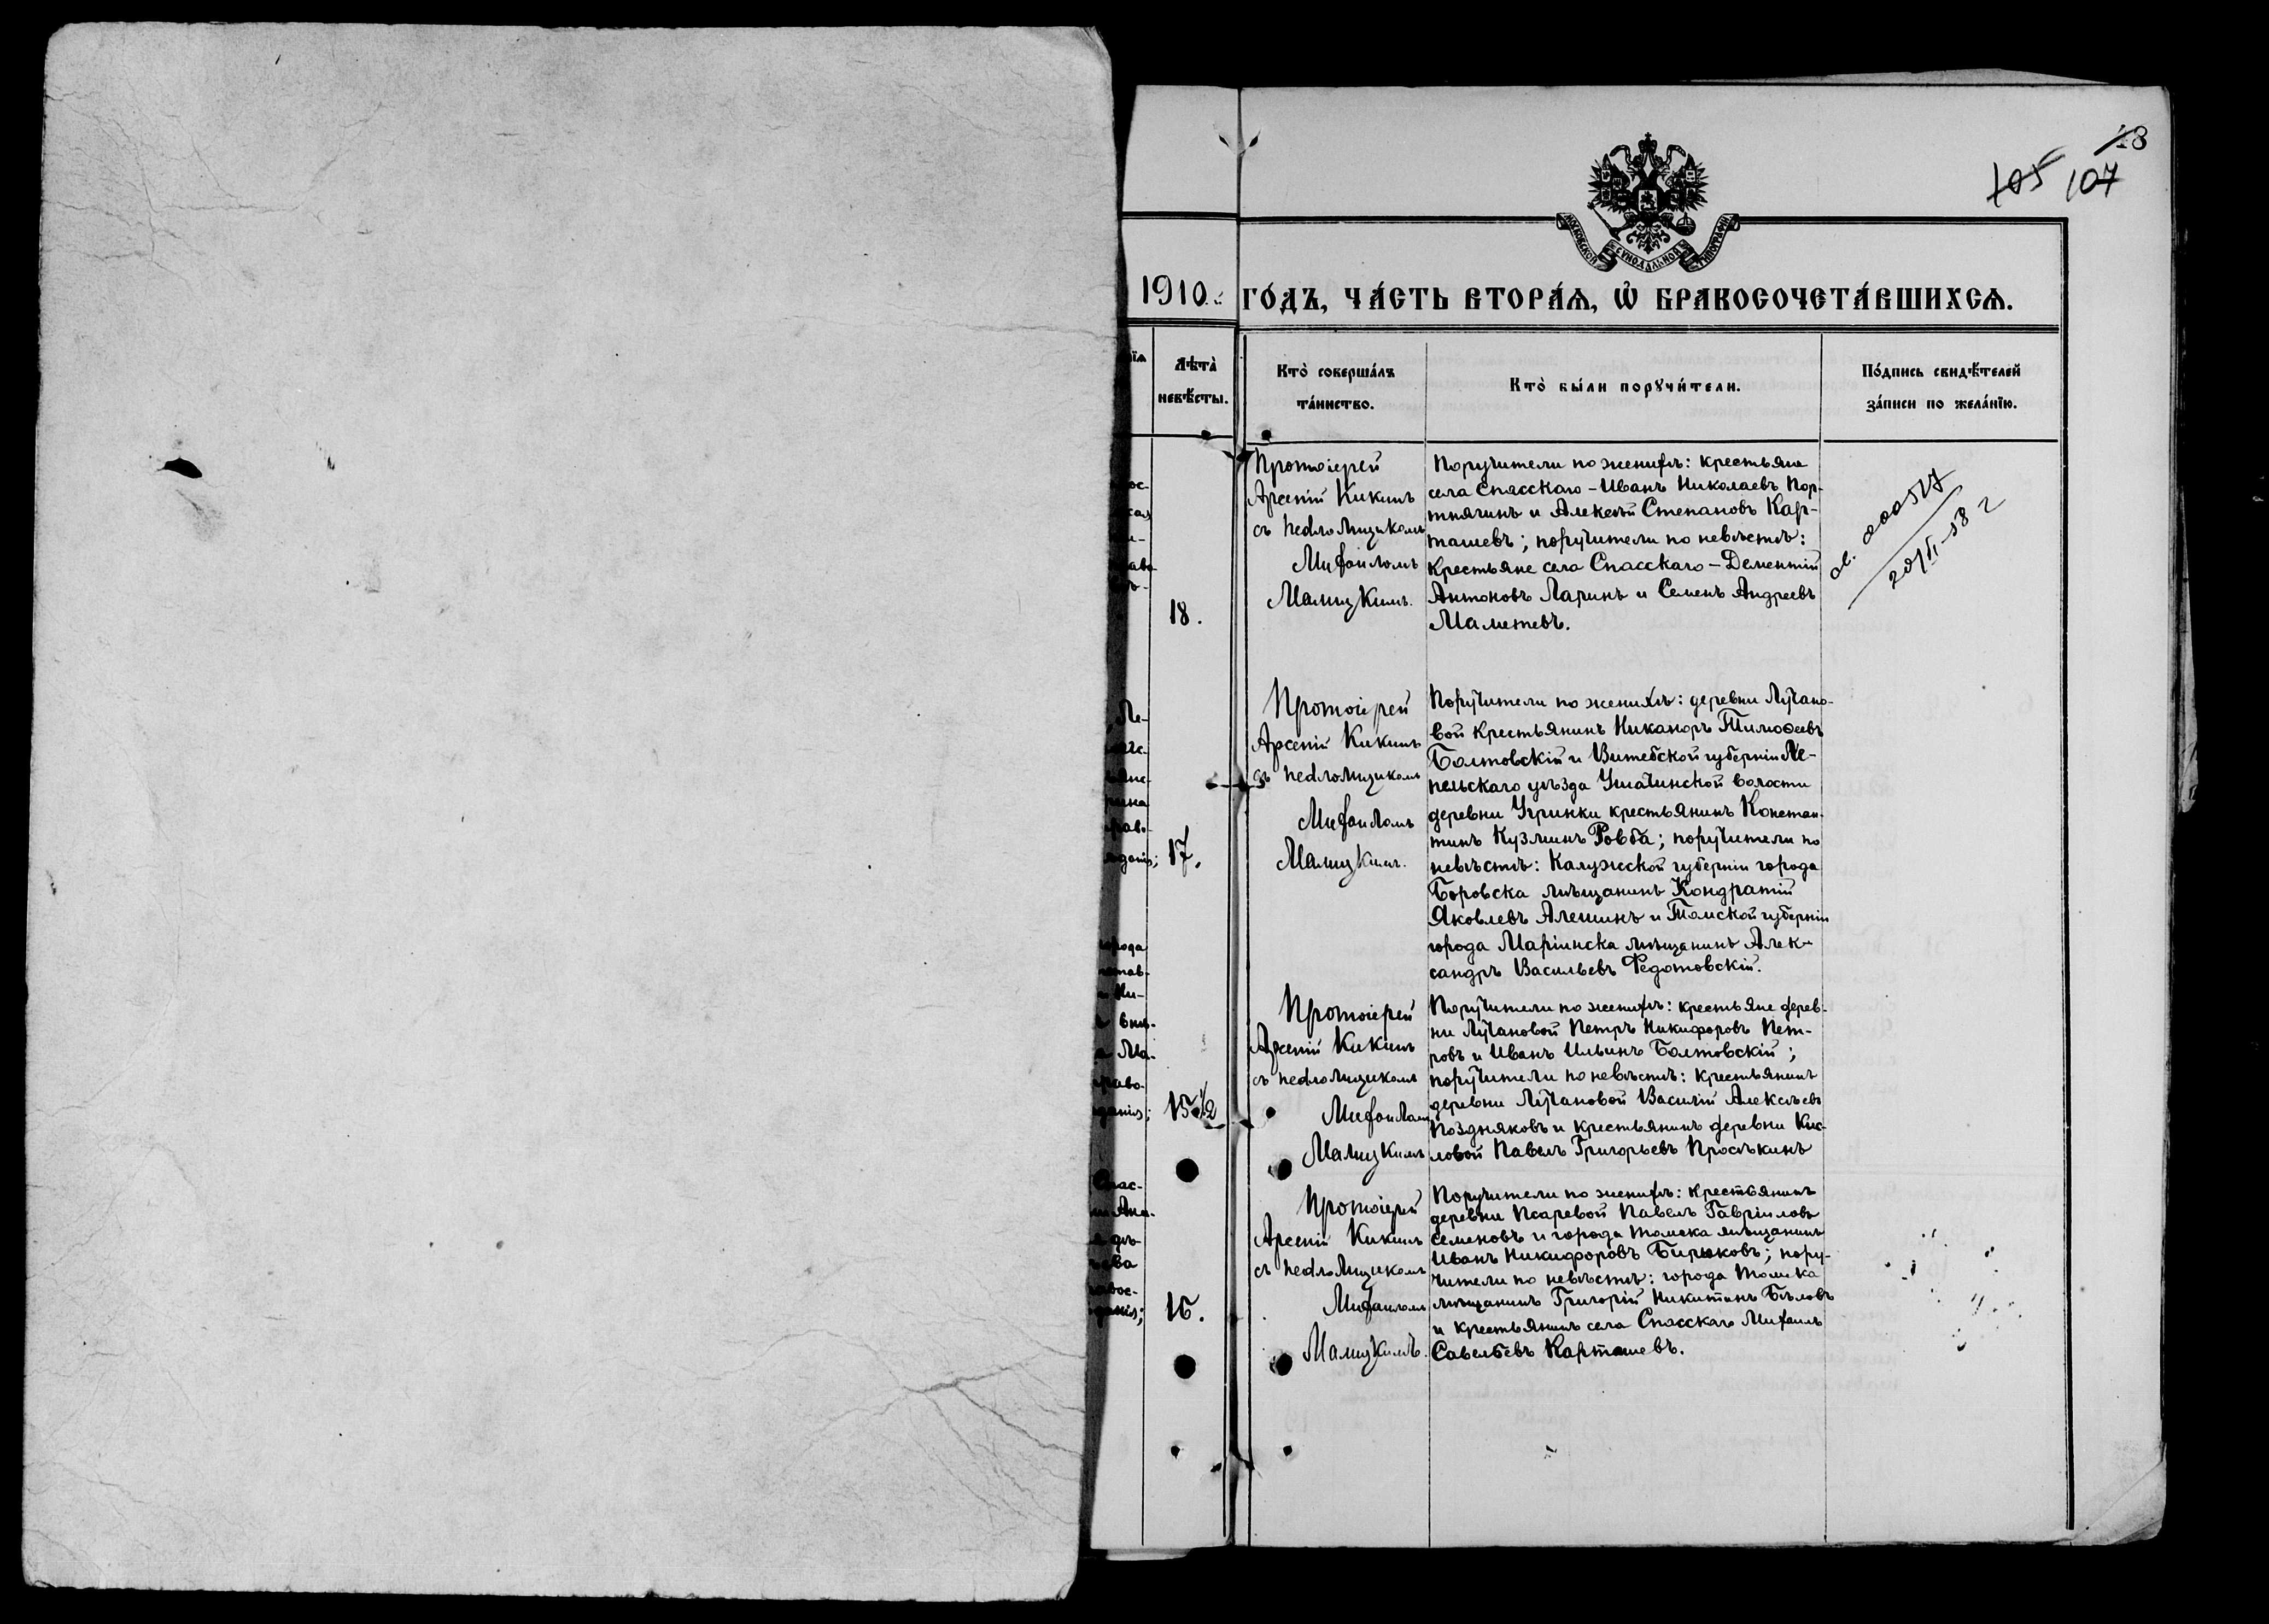 18
105 107
МОСКОВСКОЙ СѴНОДАЛЬНОЙ ТИПОГРАФІИ
1910 го́дъ, ча́сть втора́ѧ, ѡ҆ бракосочета́вшихсѧ.
Лѣта̀
невѣ́сты.
Кто̀ соверша́лъ
та́инство.
Кто̀ бы́ли порꙋчи́тели.
По́дпись свидѣ́телей
за́писи по жела́нїю.
18.
Протоіерей
Арсеній Кикинъ
съ псаломщикомъ
Михаиломъ
Малицкимъ.
Поручители по женихѣ: крестьяне
села Спасскаго – Иванъ Николаевъ Пор-
тнягинъ и Алексѣй Степановъ Кар-
ташевъ; поручители по невѣстѣ:
крестьяне села Спасскаго – Дементій
Антоновъ Ларинъ и Семенъ Андреевъ
Маметевъ.
17.
Протоіерей
Арсеній Кикинъ
съ псаломщикомъ
Михаиломъ
Малицкимъ.
Поручители по женихѣ: деревни Лучано-
вой крестьянинъ Никаноръ Тимоѳеевъ
Болтовскій и Витебской губерніи Ле-
пельскаго уѣзда Ушачинской волости
деревни Угринки крестьянинъ Констан-
тинъ Кузминъ Ровба; поручители по
невѣстѣ: Калужской губерніи города
Боровска мѣщанинъ Кондратій
Яковлевъ Алешинъ и Томской губерніи
города Маріинска мѣщанинъ Алек-
сандръ Васильевъ Федотовскій.
15 1/2
Протоіерей
Арсеній Кикинъ
съ псаломщикомъ
Михаиломъ
Малицкимъ
Поручители по женихѣ: крестьяне дерев-
ни Лучановой Петръ Никифоровъ Пет-
ровъ и Иванъ Ильинъ Болтовскій;
поручители по невѣстѣ: крестьянинъ
деревни Лучановой Василій Алексѣевъ
Поздняковъ и крестьянинъ деревни Кис-
ловой Павелъ Григорьевъ Просѣкинъ
16.
Протоіерей
Арсеній Кикинъ
съ псаломщикомъ
Михаиломъ
Малицкимъ.
Поручители по женихѣ: крестьянинъ
деревни Писаревой Павелъ Гавріиловъ
Семеновъ и города Томска мѣщанинъ
Иванъ Никифоровъ Бирюковъ; пору-
чители по невѣстѣ: города Томска
мѣщанинъ Григорій Никитинъ Бѣловъ
и крестьянинъ села Спасскаго Михаилъ
Савельевъ Карташевъ.